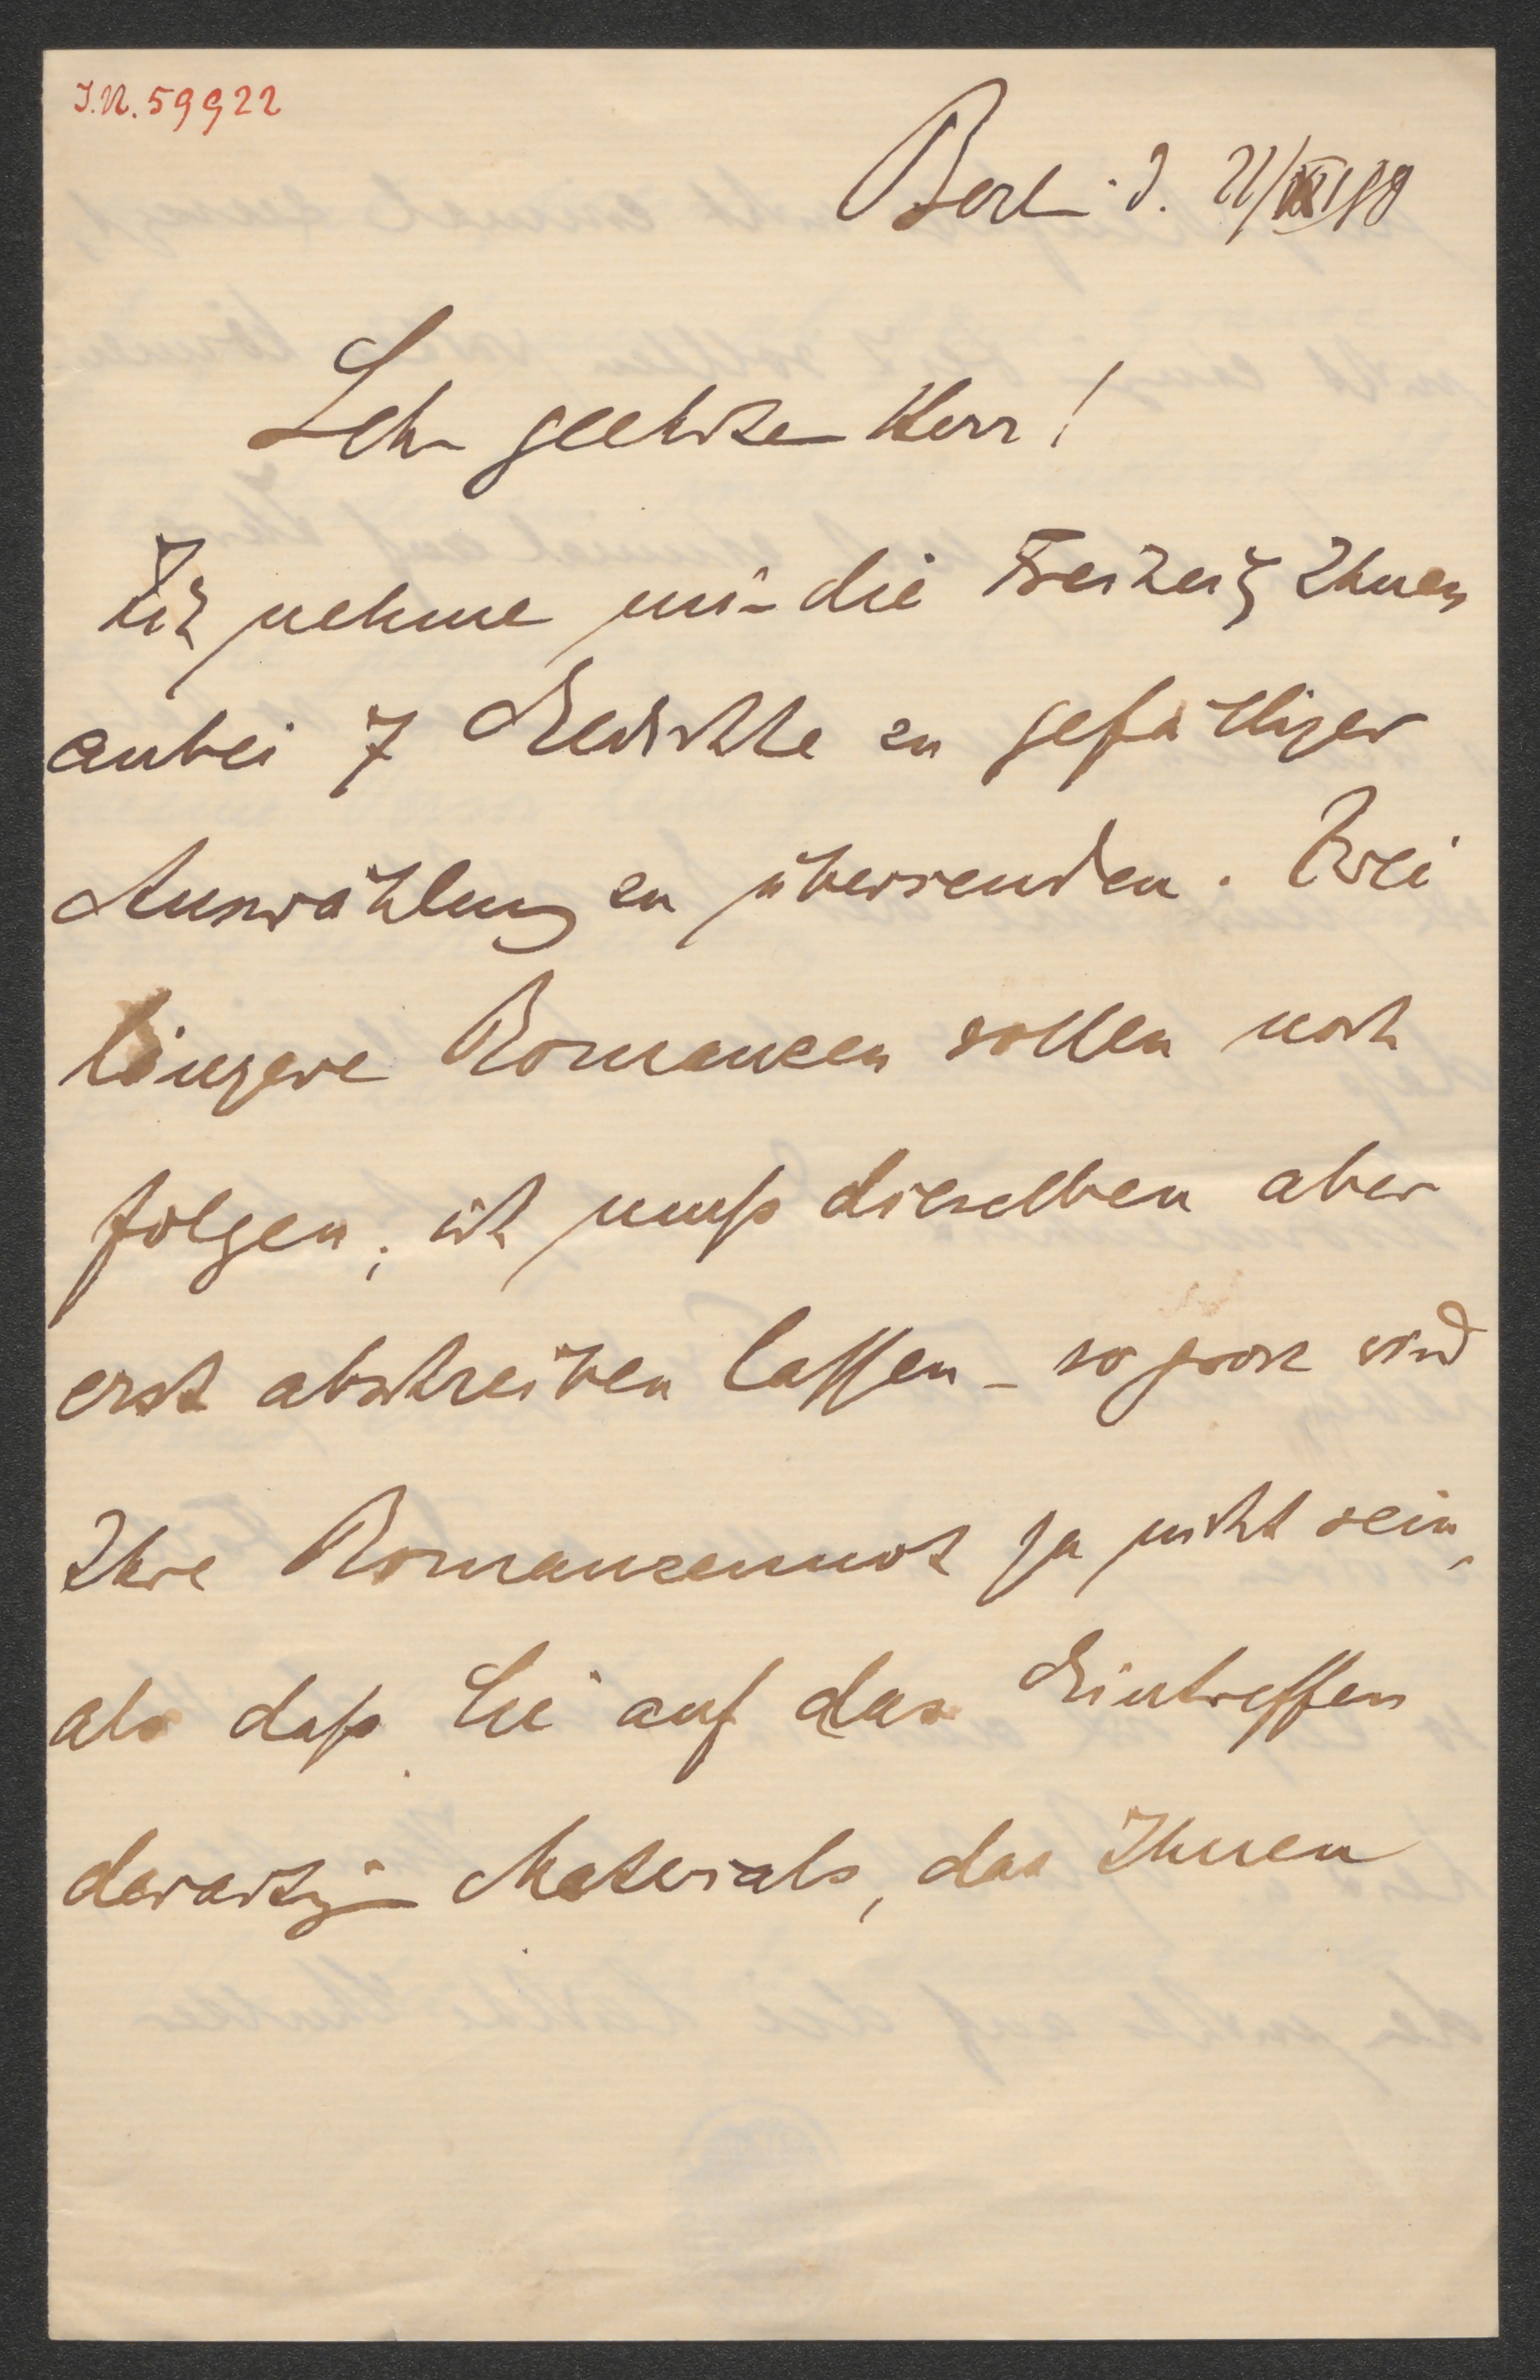 I.N. 59922
Berlin d. 21/XI 98
Sehr geehrter Herr!
Ich nehme mir die Freiheit Ihnen
anbei 7 Gedichte zu gefälliger
Auswählung zu übersenden. Zwei
längere Romanzen sollen noch
folgen; ich muß dieselben aber
erst abschreiben lassen – so gross wird
Ihre Romanzennot ja nicht sein,
als daß Sie auf das Eintreffen
derartigen Materials, das Ihnen